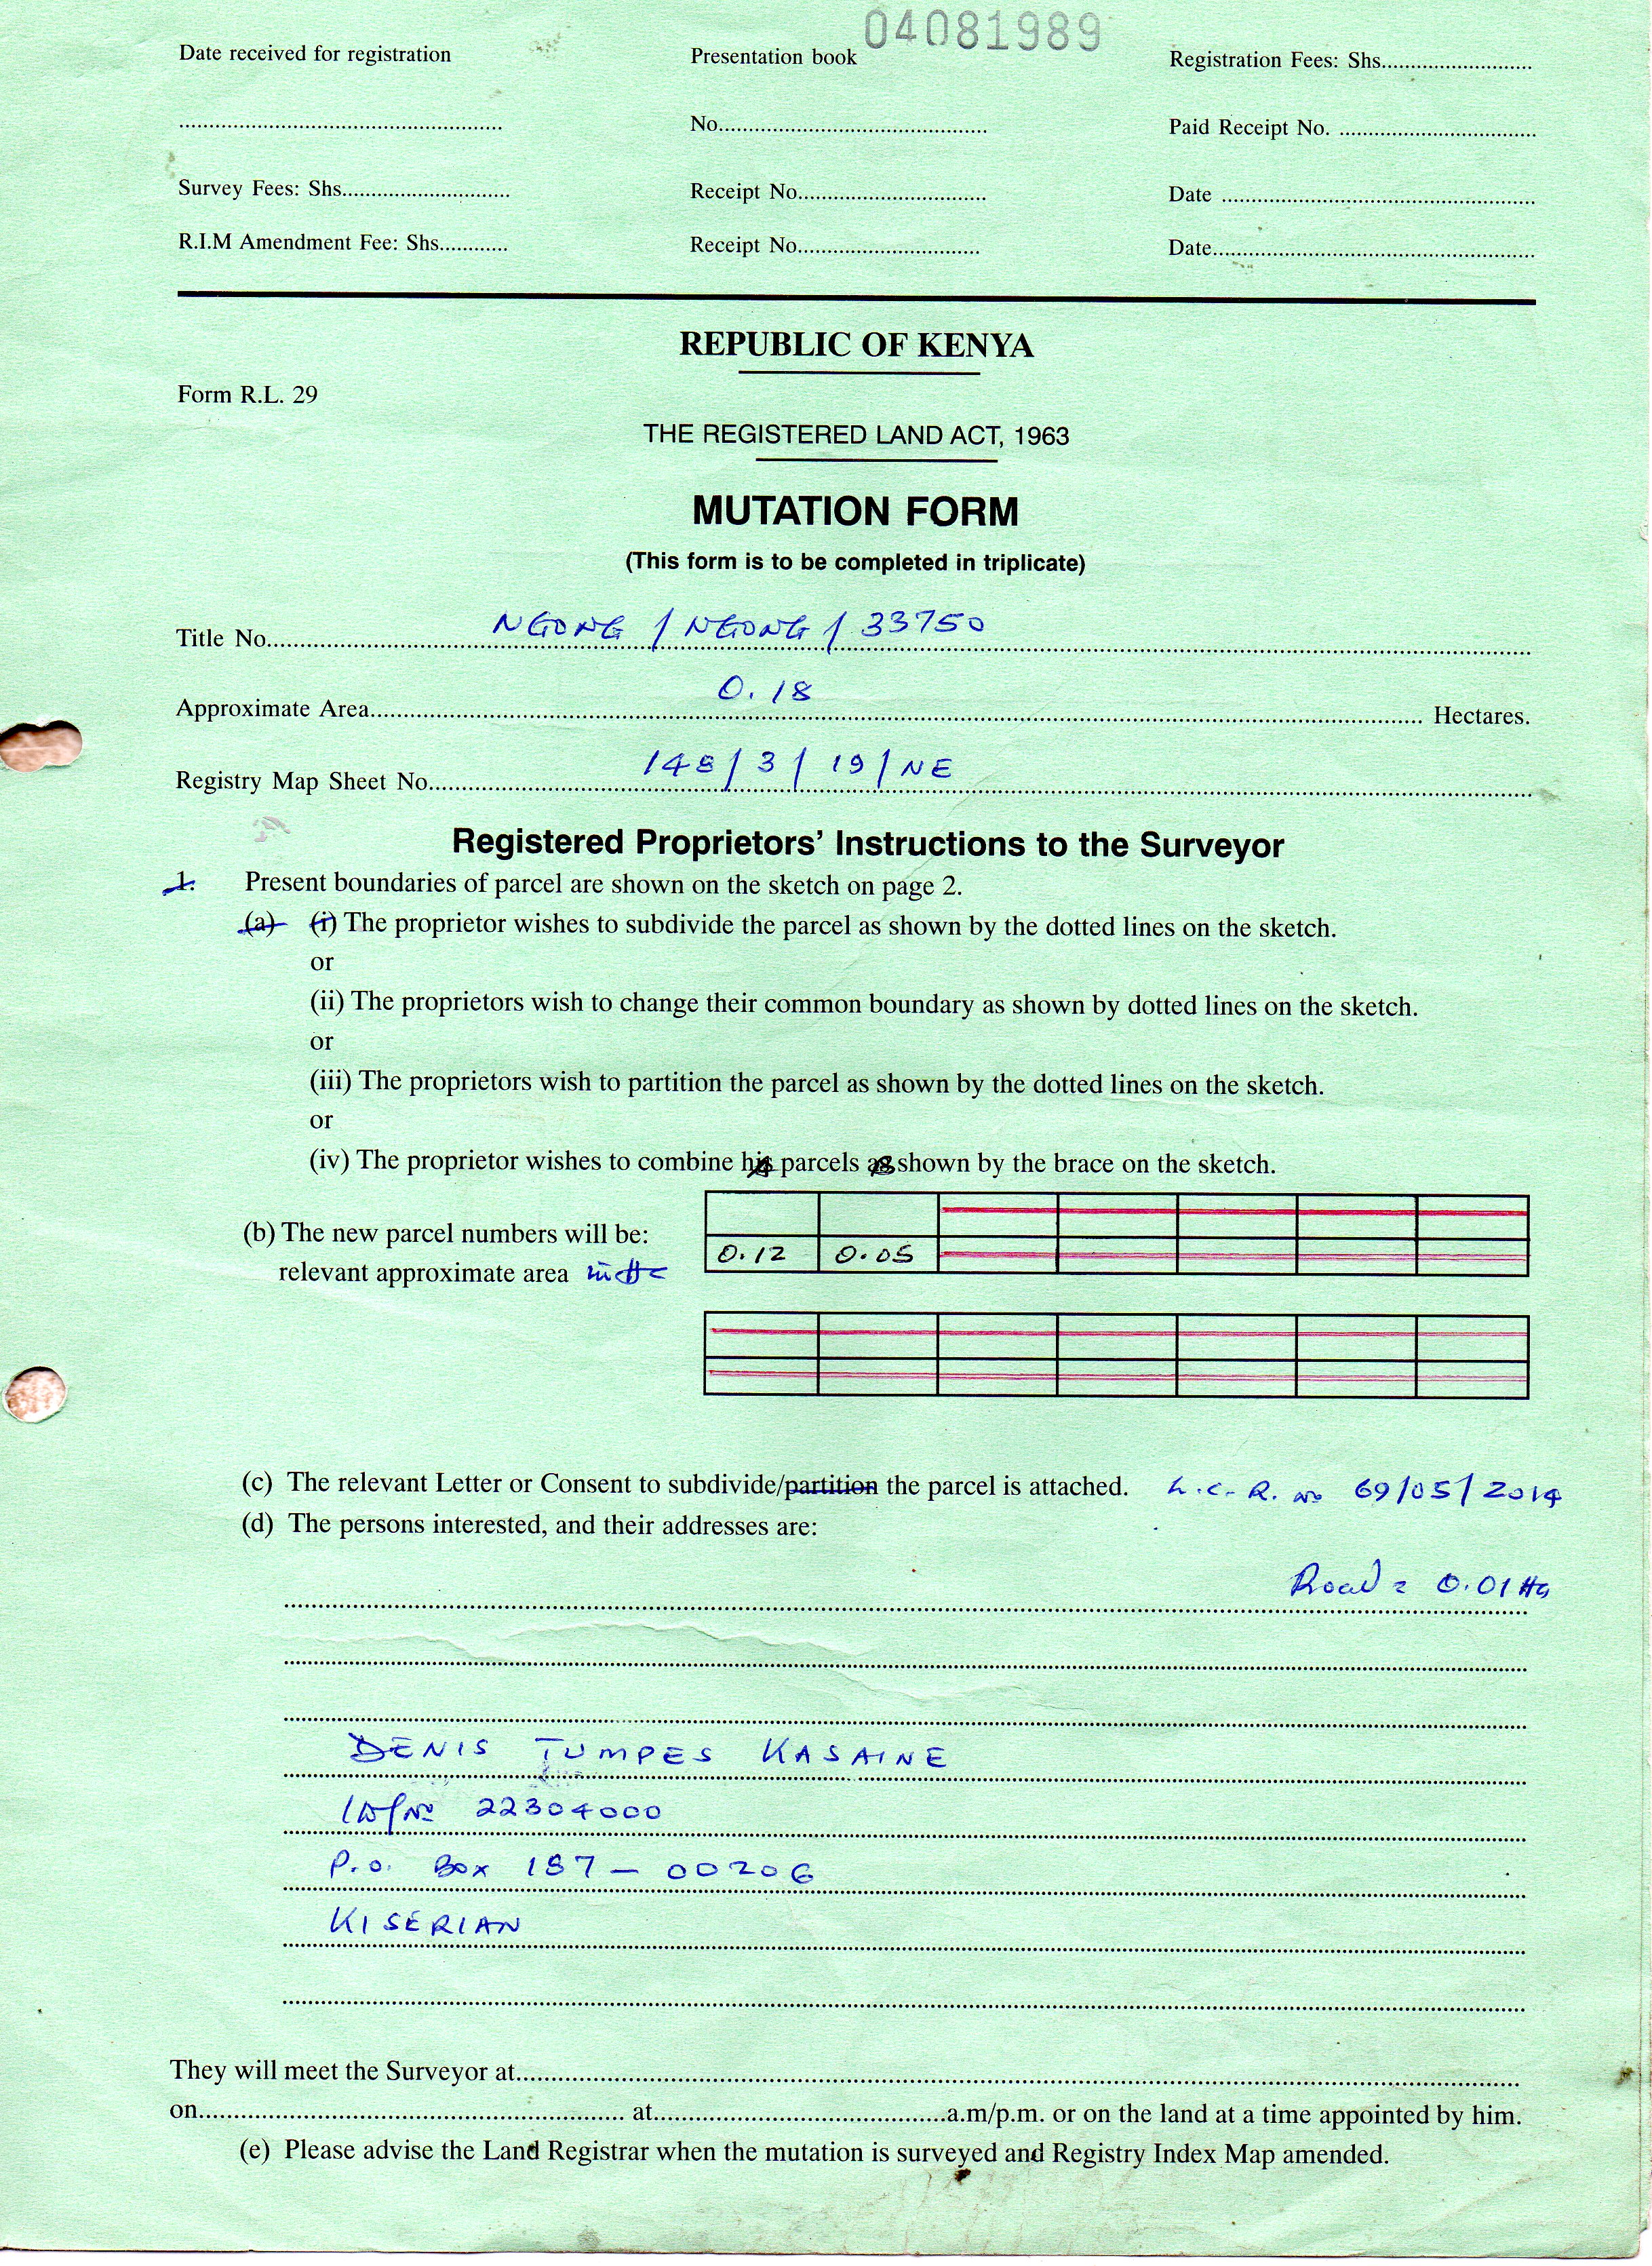 04081989
Date received for registration Presentation book Registration Fees: Shs..........................
...................................................... No............................................. Paid Receipt No. .................................
Survey Fees: Shs............................ Receipt No................................ Date ....................................................
R.I.M Amendment Fee: Shs............ Receipt No............................... Date......................................................
REPUBLIC OF KENYA
Form R.L. 29
THE REGISTERED LAND ACT, 1963
MUTATION FORM
(This form is to be completed in triplicate)
Title No. NGONG / NGONG / 33750
Approximate Area 0.18 Hectares.
Registry Map Sheet No. 148/3/19/NE
Registered Proprietors' Instructions to the Surveyor
1. Present boundaries of parcel are shown on the sketch on page 2.
(a) (i) The proprietor wishes to subdivide the parcel as shown by the dotted lines on the sketch.
or
(ii) The proprietors wish to change their common boundary as shown by dotted lines on the sketch.
or
(iii) The proprietors wish to partition the parcel as shown by the dotted lines on the sketch.
or
(iv) The proprietor wishes to combine his parcels as shown by the brace on the sketch.
(b) The new parcel numbers will be:
relevant approximate area in Ha 0.12 0.05
(c) The relevant Letter or Consent to subdivide/partition the parcel is attached. L.C.R. No 69/05/2014
(d) The persons interested, and their addresses are:
Road = 0.01 Ha
DENIS TUMPES KASAINE
ID/No 22304000
P.O. Box 187 - 00206
KISERIAN
They will meet the Surveyor at..........................................................................
on................................................ at................................a.m/p.m. or on the land at a time appointed by him.
(e) Please advise the Land Registrar when the mutation is surveyed and Registry Index Map amended.